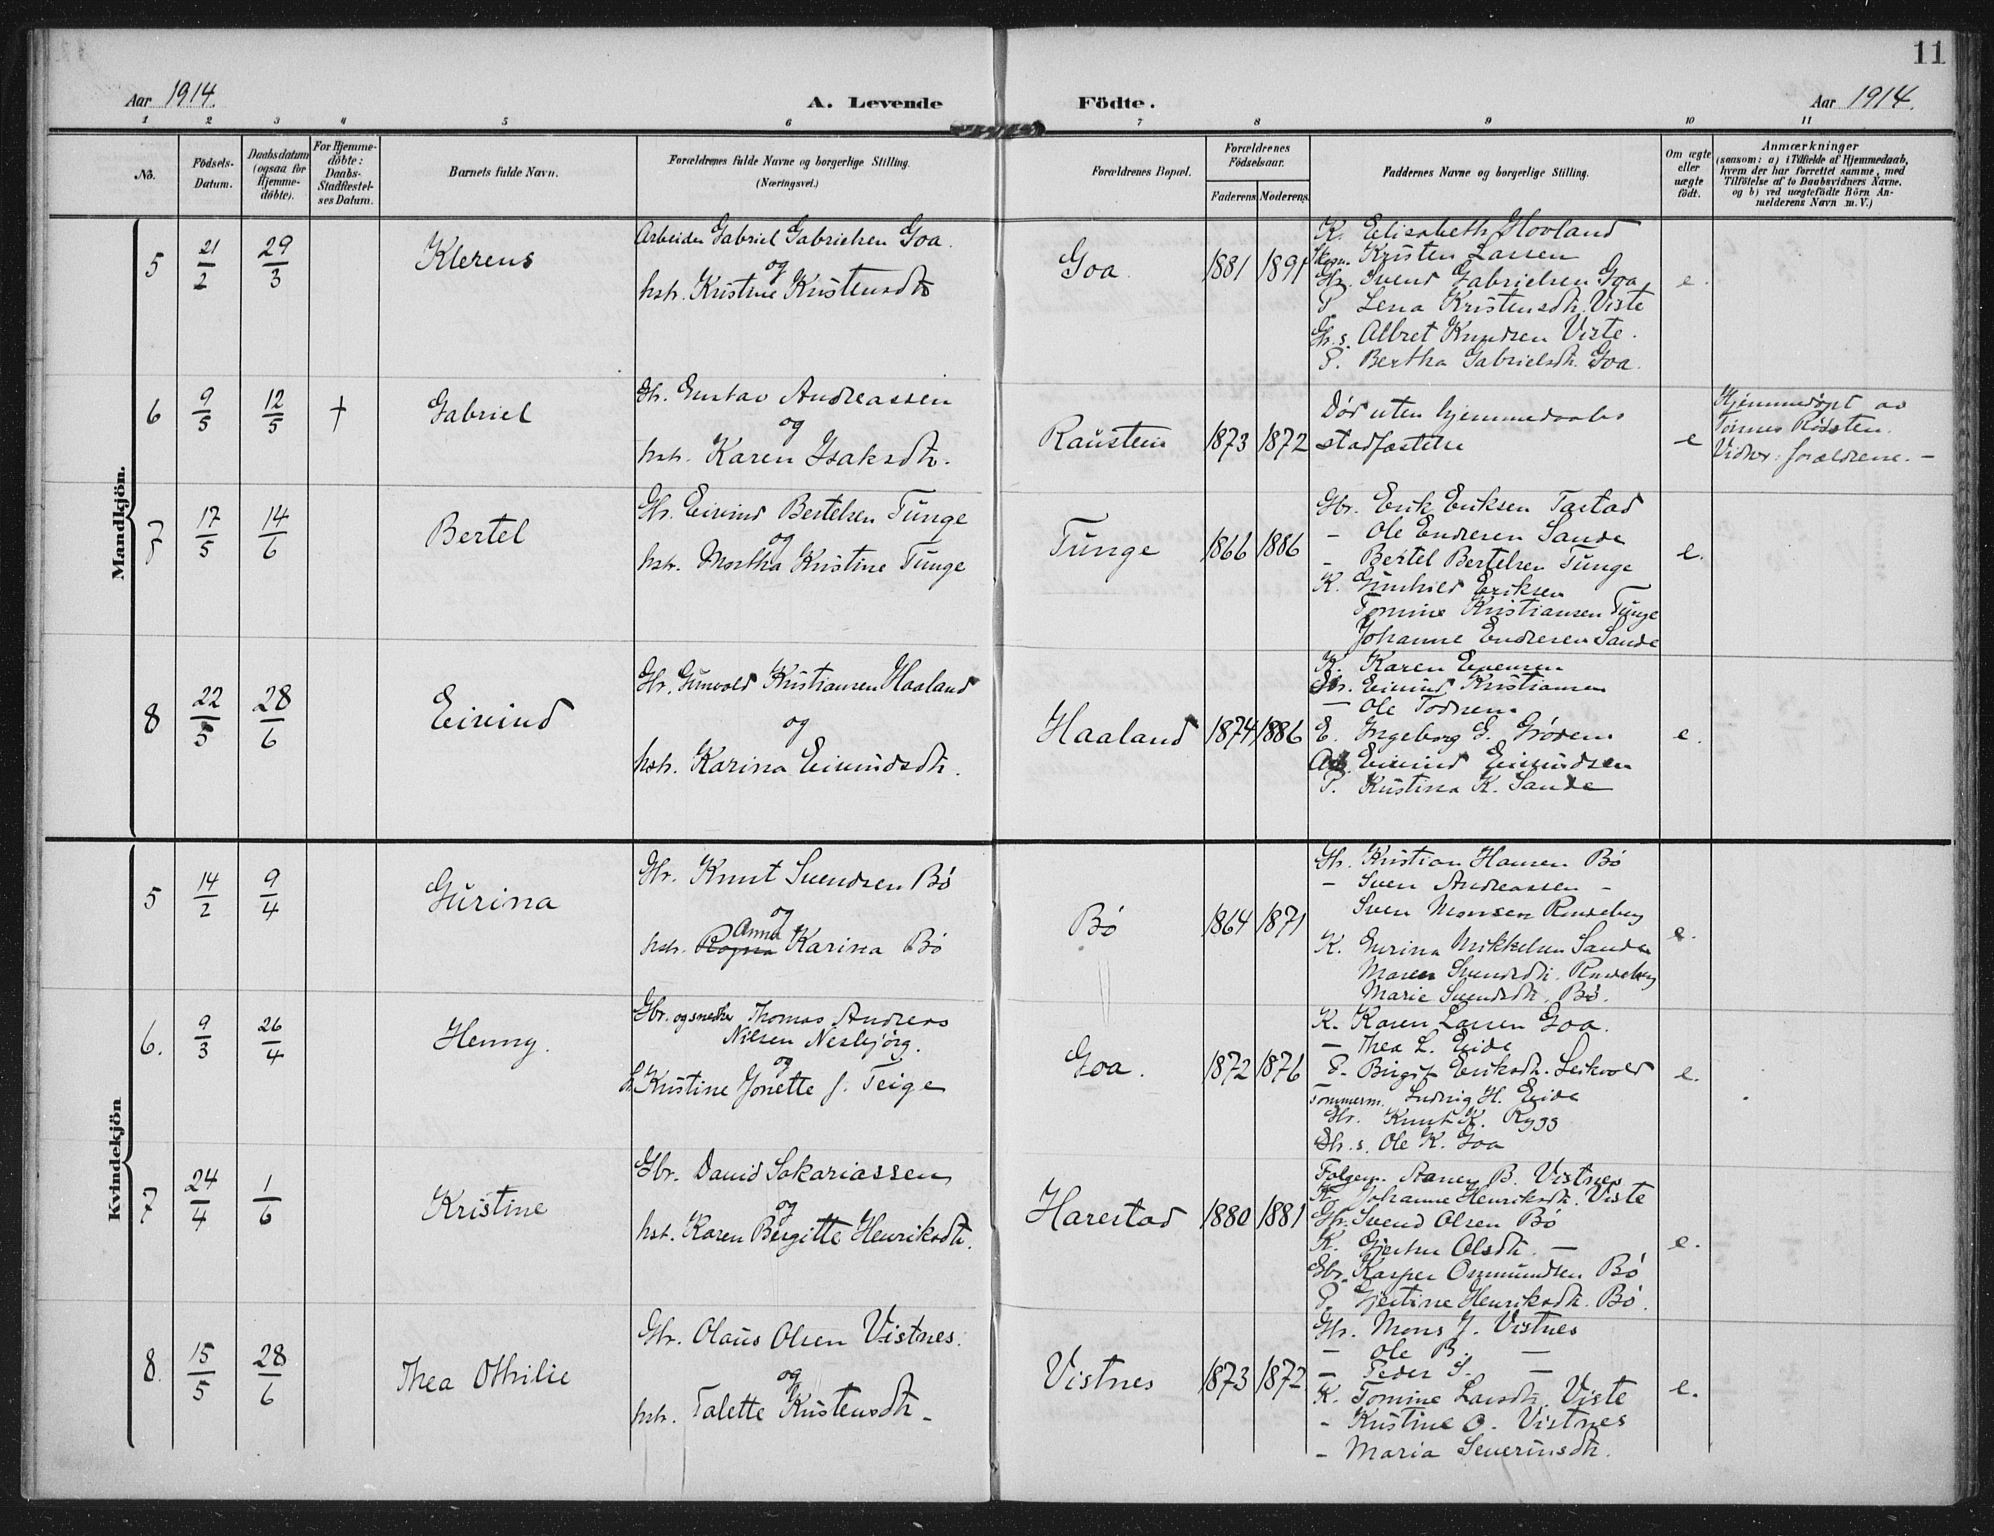 11
Aar 1914.
A. Levende Födte.
Aar 1914.
1 2 3 4 5 6 7 8 9 10 11
No.
Födsels-Datum.
Daabsdatum (ogsaa for Hjemme-döbte).
For Hjemme-döbte: Daabs-Stadfæstel-ses Datum.
Barnets fulde Navn.
Forældrenes fulde Navne og borgerlige Stilling.
(Næringsvei.)
Forældrenes Bopæl.
Forældrenes Födselsaar.
Faderens Moderens.
Faddernes Navne og borgerlige Stilling.
Om ægte eller uægte födt.
Anmærkninger
(saasom: a) i Tilfælde af Hjemmedaab, hvem der har forrettet samme, med Tilföielse af to Daabsvidners Navne, og b) ved uægtefödte Börn Anmelderens Navn m. V.)
Mandkjön.
5 21/2 29/3 Klerens
Arbeider Gabriel Gabrielsen Goa.
og
hstr. Kristine Kristensdtr
Goa 1881 1891
K. Elisabeth Hovland
Kristen Larsen
Gbr. Svend Gabrielsen Goa
P. Lena Kristensdtr. Viste
Gbr. s. Albret Knudsen Viste.
P. Bertha Gabrielsdtr. Goa.
e.
6 9/5 12/5 † Gabriel
Gbr. Gustav Andreassen
og
hstr. Karen Isaksdtr.
Raustein 1873 1872
Död uten hjemmedaabs
stadfæstelse
e
Hjemmedöpt av
Vidner: forældrene. –
7 17/5 14/6 Bertel
Gbr. Eivind Bertelsen Tunge
og
hstr. Martha Kristine Tunge
Tunge 1866 1886
Gbr. Erik Eriksen Tastad
– Ole Endresen Sande
– Bertel Bertelsen Tunge
K. Gunhild Eriksen
Tomine Kristiansen Tunge
Johanne Endresen Sande
e.
8 22/5 28/6 Eivind
Gbr. Gunvald Kristiansen Haaland
og
hstr. Karina Eivindsdtr.
Haaland 1874 1886
K. Karen Evensen
Gbr. Eivind Kristiansen
– Ole Todnem
E. Ingeborg G. Gródem
Arb. Eivind Eivindsen
P. Kristina K. Sande
e.
Kvindekjön
5 14/2 9/4 Gurina
Gbr. Knut Svendsen Bö
og
Anna
hstr. Ragna Karina Bö
Bö 1864 1871
Gbr. Kristian Hansen Bö
– Sven Andreassen –
Sven Monsen Randeberg
K. Gurina Mikkelsen Sande
Maren Svendsdtr. Randeberg
Marie Svendsdtr. Bö.
e.
6. 9/3 26/4 Henny.
Gbr. og snedker Thomas Andreas
Nilsen Nesbjörg.
og
h. Kristine Jonette f. Teige
Goa. 1872 1876
K. Karen Larsen Goa.
– Thea L. Eide
P. Birgit Eriksdtr. Leikvold
Tömmerm. Ludvig H. Eide
Gbr. Knut K. Rygg
Gbr. s. Ole K. Goa
e.
7 24/4 1/6 Kristine
Gbr. David Sakariassen
og
hst. Karen Bergitte Henriksdtr.
Harestad 1880 1881
B. Vistnes
K. Johanne Henriksdtr. Viste
Gbr. Svend Olsen Bö
K. Gjertine Olsdtr. –
Gbr. Kasper Ommundsen Bö
P. Gjertine Henriksdtr. Bö.
e.
8. 15/5 28/6 Thea Othilie
Gbr. Olaus Olsen Vistnes.
og
hstr. Talette Kristensdtr –
Vistnes 1873 1872
Gbr. Mons J. Vistnes
– Ole B. –
– Peder S. –
K. Tomine Larsdtr. Viste
– Kristine O. Vistnes
– Maria Severinsdtr.
e.